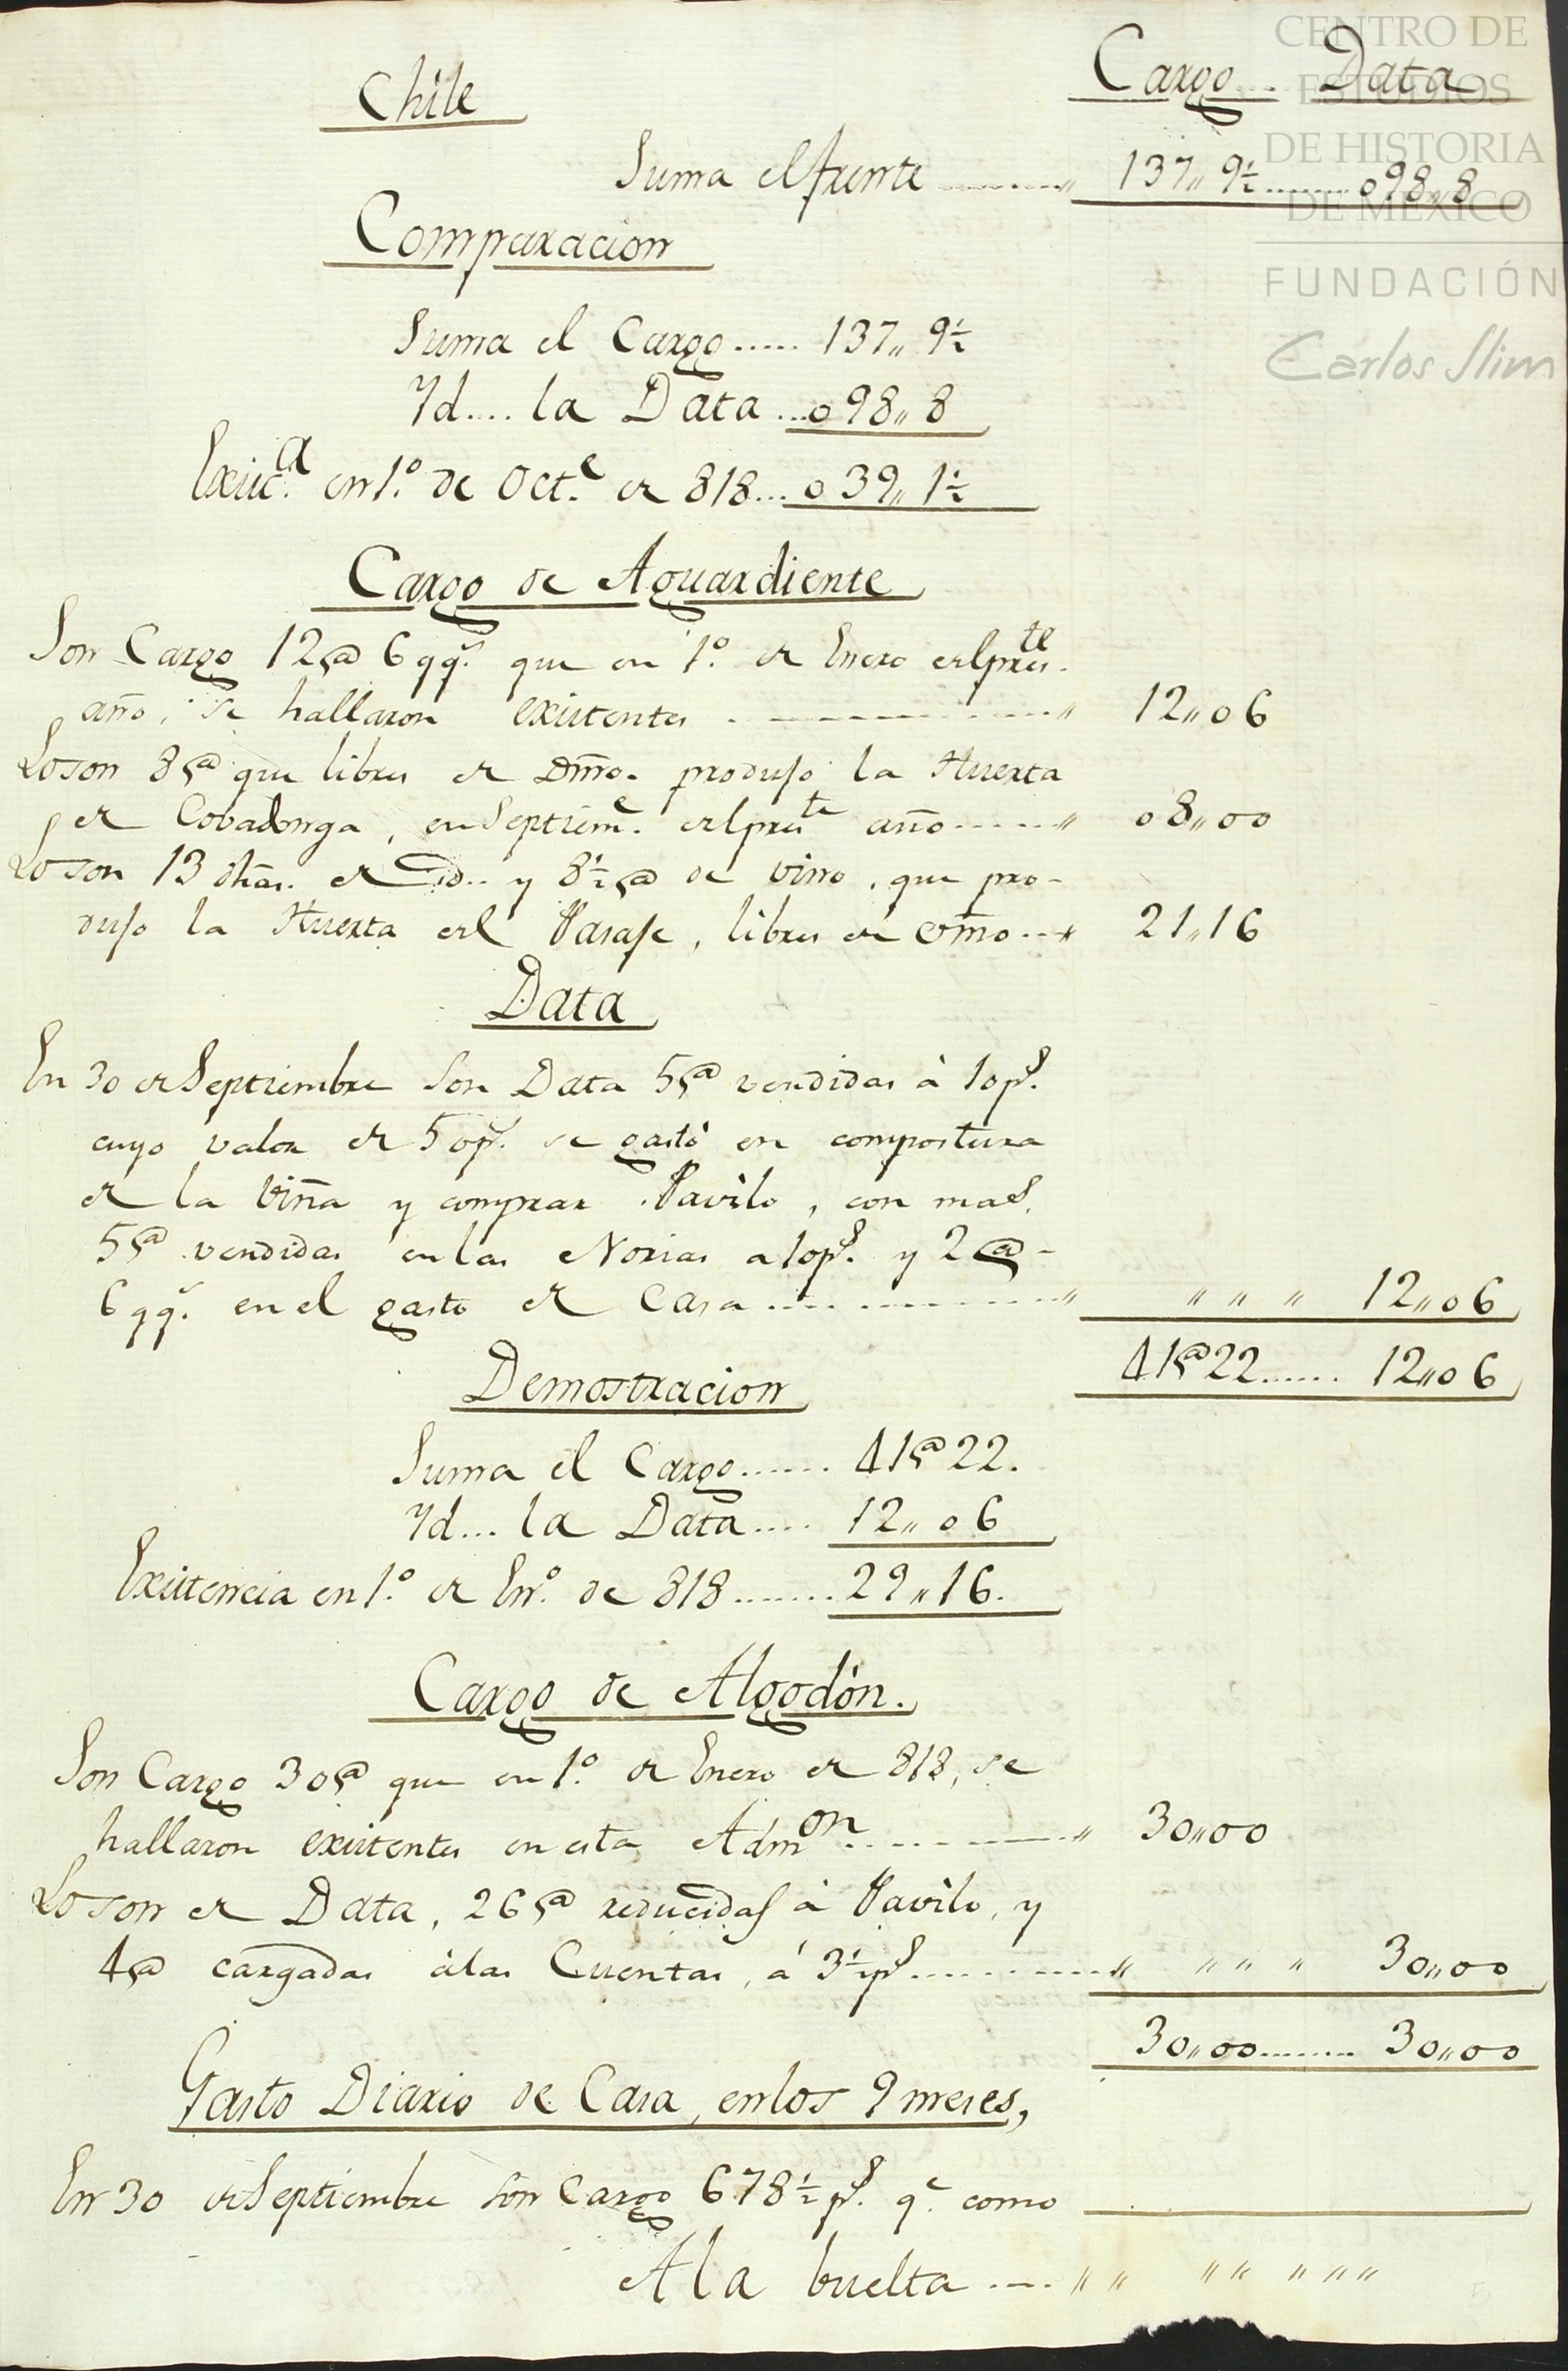 CENTRO DE
ESTUDIOS
DE HISTORIA
DE MÉXICO
FUNDACIÓN
Carlos Slim
Cargo... Data
Chile
Suma el frente ........ " 137,, 9½ ........ 098,, 8
Comparacion
Suma el Cargo ..... 137,, 9½
Yd.... la Data ... 098,, 8
Exisc.ª en 1.º de Oct.e de 818... 039,, 1½
Cargo de Aguardiente
Son Cargo 12@ 6qq.s que en 1.º de Enero del pres.te
año, se hallaron existentes ........ " 12,,06
Lo son 8@ que libres de Dmo. produjo la Huerta
de Cobadonga, en Septiem.e del pres.te año ..... " 08,,00
Lo son 13 dhas. de id.. y 8½@ de vino, que pro-
dujo la Huerta del Pasaje, libres de Dmo ... " 21,,16
Data
En 30 de Septiembre Son Data 5@ vendidas à 10p.s
cuyo valor de 50p.s se gastó en compostura
de la Viña y comprar Pavilo, con mas
5@ vendidas en las Norias a 10p.s y 2@-
6qq.s en el gasto de Casa ........ " " " " 12,,06
41@22...... 12,,06
Demostracion
Suma el Cargo ...... 41@22.
Yd... la Data .... 12,,06
Existencia en 1.º de En.º de 818 ....... 29,,16.
Cargo de Algodón.
Son Cargo 30@ que en 1.º de Enero de 818, se
hallaron existentes en esta Adm.on ........ " 30,,00
Lo son de Data, 26@ reducidas à Pavilo, y
4@ cargadas à las Cuentas, á 3½p.s ........ " " " " 30,,00
30,,00........ 30,,00
Gasto Diario de Casa, en los 9 meses,
En 30 de Septiembre son Cargo 678½p.s q.e como
A la buelta .... " " " " " " "